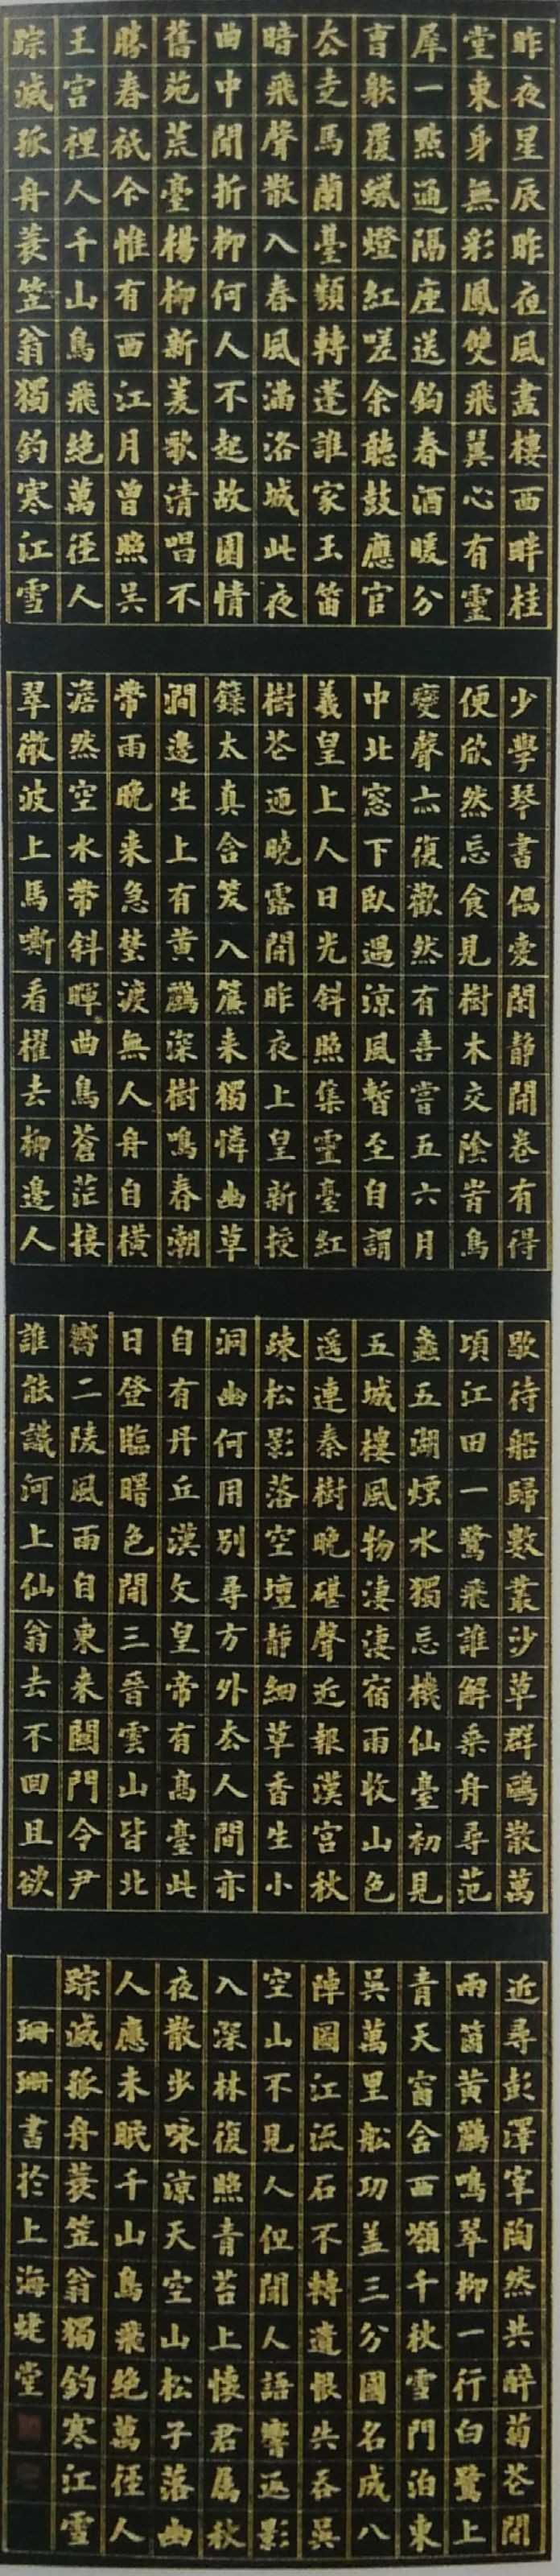 昨夜星辰昨夜風畫樓西畔桂
堂東身無彩鳳雙飛翼心有靈
犀一點通隔座送鈎春酒暖分
曹射覆蠟燈紅嗟余聽鼓應官
去走馬蘭臺類轉蓬誰家玉笛
暗飛聲散入春風滿洛城此夜
曲中聞折柳何人不起故園情
舊苑荒臺楊柳新菱歌清唱不
勝春祇今惟有西江月曾照吳
王宮裡人千山鳥飛絕萬徑人
踪滅孤舟蓑笠翁獨釣寒江雪
少學琴書偶愛閑靜開卷有得
便欣然忘食見樹木交蔭時鳥
變聲亦復歡然有喜嘗五六月
中北窓下臥遇涼風暫至自謂
羲皇上人日光斜照集靈臺紅
樹花迎曉露開昨夜上皇新授
籙太真含笑入簾来獨憐幽草
澗邊生上有黃鸝深樹鳴春潮
帶雨晚来急野渡無人舟自橫
澹然空水帶斜暉曲島蒼茫接
翠微波上馬嘶看櫂去柳邊人
歇待船歸數叢沙草群鷗散萬
頃江田一鷺飛誰解乘舟尋范
蠡五湖煙水獨忘機仙臺初見
五城樓風物淒淒宿雨收山色
遥連秦樹晚砧聲近報漢宮秋
疎松影落空壇靜細草香生小
洞幽何用別尋方外去人間亦
自有丹丘漢文皇帝有高臺此
日登臨曙色開三晉雲山皆北
嚮二陵風雨自東来關門令尹
誰能識河上仙翁去不回且欲
近尋彭澤宰陶然共醉菊花開
兩箇黃鸝鳴翠柳一行白鷺上
青天窗含西嶺千秋雪門泊東
吳萬里船功蓋三分國名成八
陣圖江流石不轉遺恨失吞吳
空山不見人但聞人語響返影
入深林復照青苔上懷君屬秋
夜散步咏涼天空山松子落幽
人應未眠千山鳥飛絕萬徑人
踪滅孤舟蓑笠翁獨釣寒江雪
珊珊書於上海婕堂